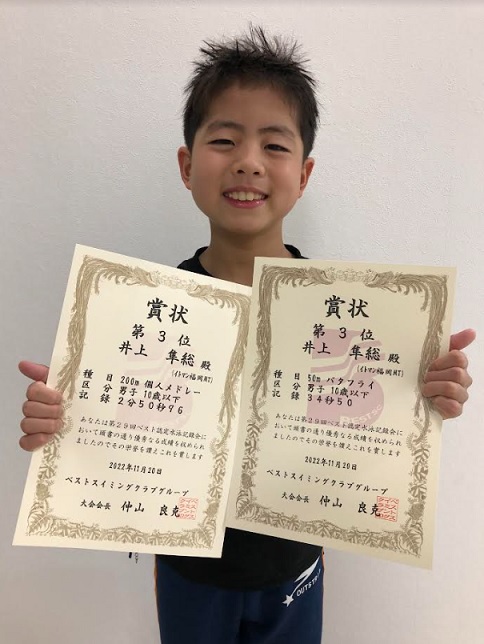 賞状
第3位
井上 隼総 殿
(イトマン福岡RT)
種目 200m 個人メドレー
区分 男子 10歳以下
記録 2分50秒96
あなたは第29回ベスト認定水泳記録会に
おいて頭書の通り優秀なる成績を収められ
ましたのでその栄誉を讃えこれを賞します
2022年11月20日
ベストスイミングクラブグループ
大会会長 仲山 良克
賞状
第3位
井上 隼総 殿
(イトマン福岡RT)
種目 50m バタフライ
区分 男子 10歳以下
記録 34秒50
あなたは第29回ベスト認定水泳記録会に
おいて頭書の通り優秀なる成績を収められ
ましたのでその栄誉を讃えこれを賞します
2022年11月20日
ベストスイミングクラブグループ
大会会長 仲山 良克